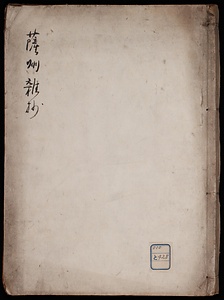 薩州雜抄